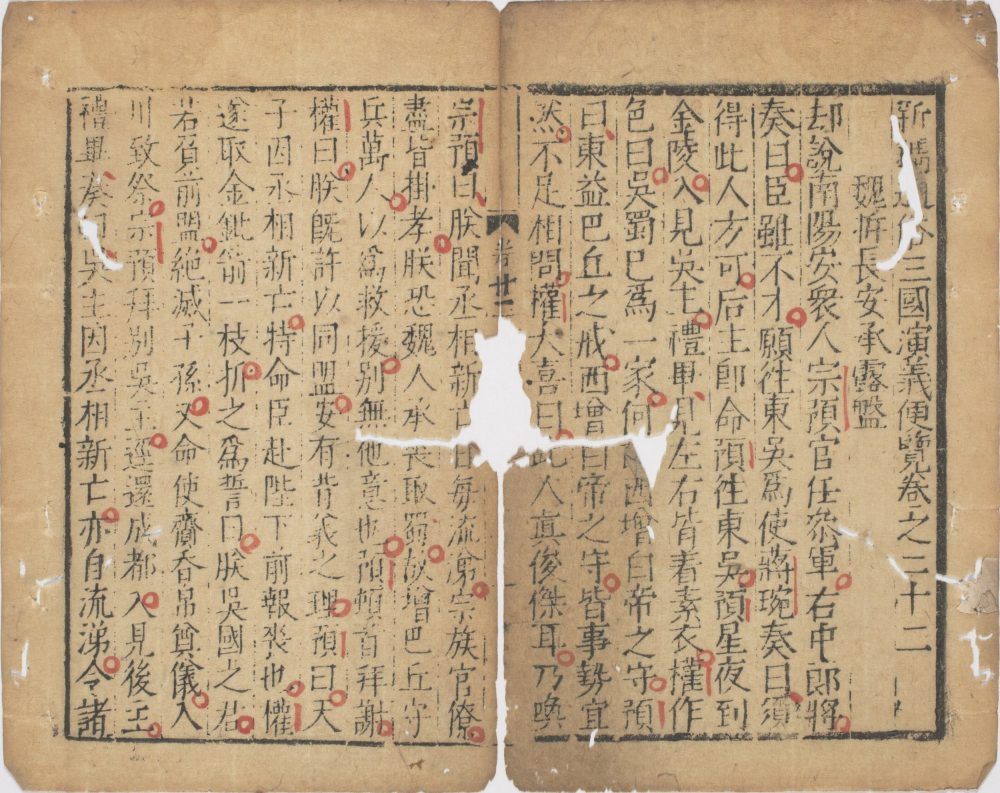 新 三國演義便覽卷之二十二
魏折長安承露盤
却說南陽安衆人宗預官任參軍右中郎將
奏曰臣雖不才願往東吳爲使蔣琬奏曰須
得此人方可后主即命預往東吳預星夜到
金陵入見吳主禮畢見左右皆着素衣權作
色曰吳蜀已爲一家何 西增白帝之守預
曰東益巴丘之戍西增白帝之守皆事勢宜
然不足相問權大喜曰此人真俊傑耳乃喚
卷廿二
宗預曰朕聞丞相新亡 日每流涕宗族官僚
盡皆掛孝朕恐魏人承喪取蜀故增巴丘守
兵萬人以爲救援別無他意也預頓首拜謝
權曰朕既許以同盟安有背義之理預曰天
子因丞相新亡特命臣赴陛下前報喪也權
遂取金鈚箭一枝折之爲誓曰朕吳國之君
若負前盟絕滅子孫又命使齎香帛奠儀入
川致祭宗預拜別吳主逕還成都入見後主
禮畢奏曰吳主因丞相新亡亦自流涕令諸